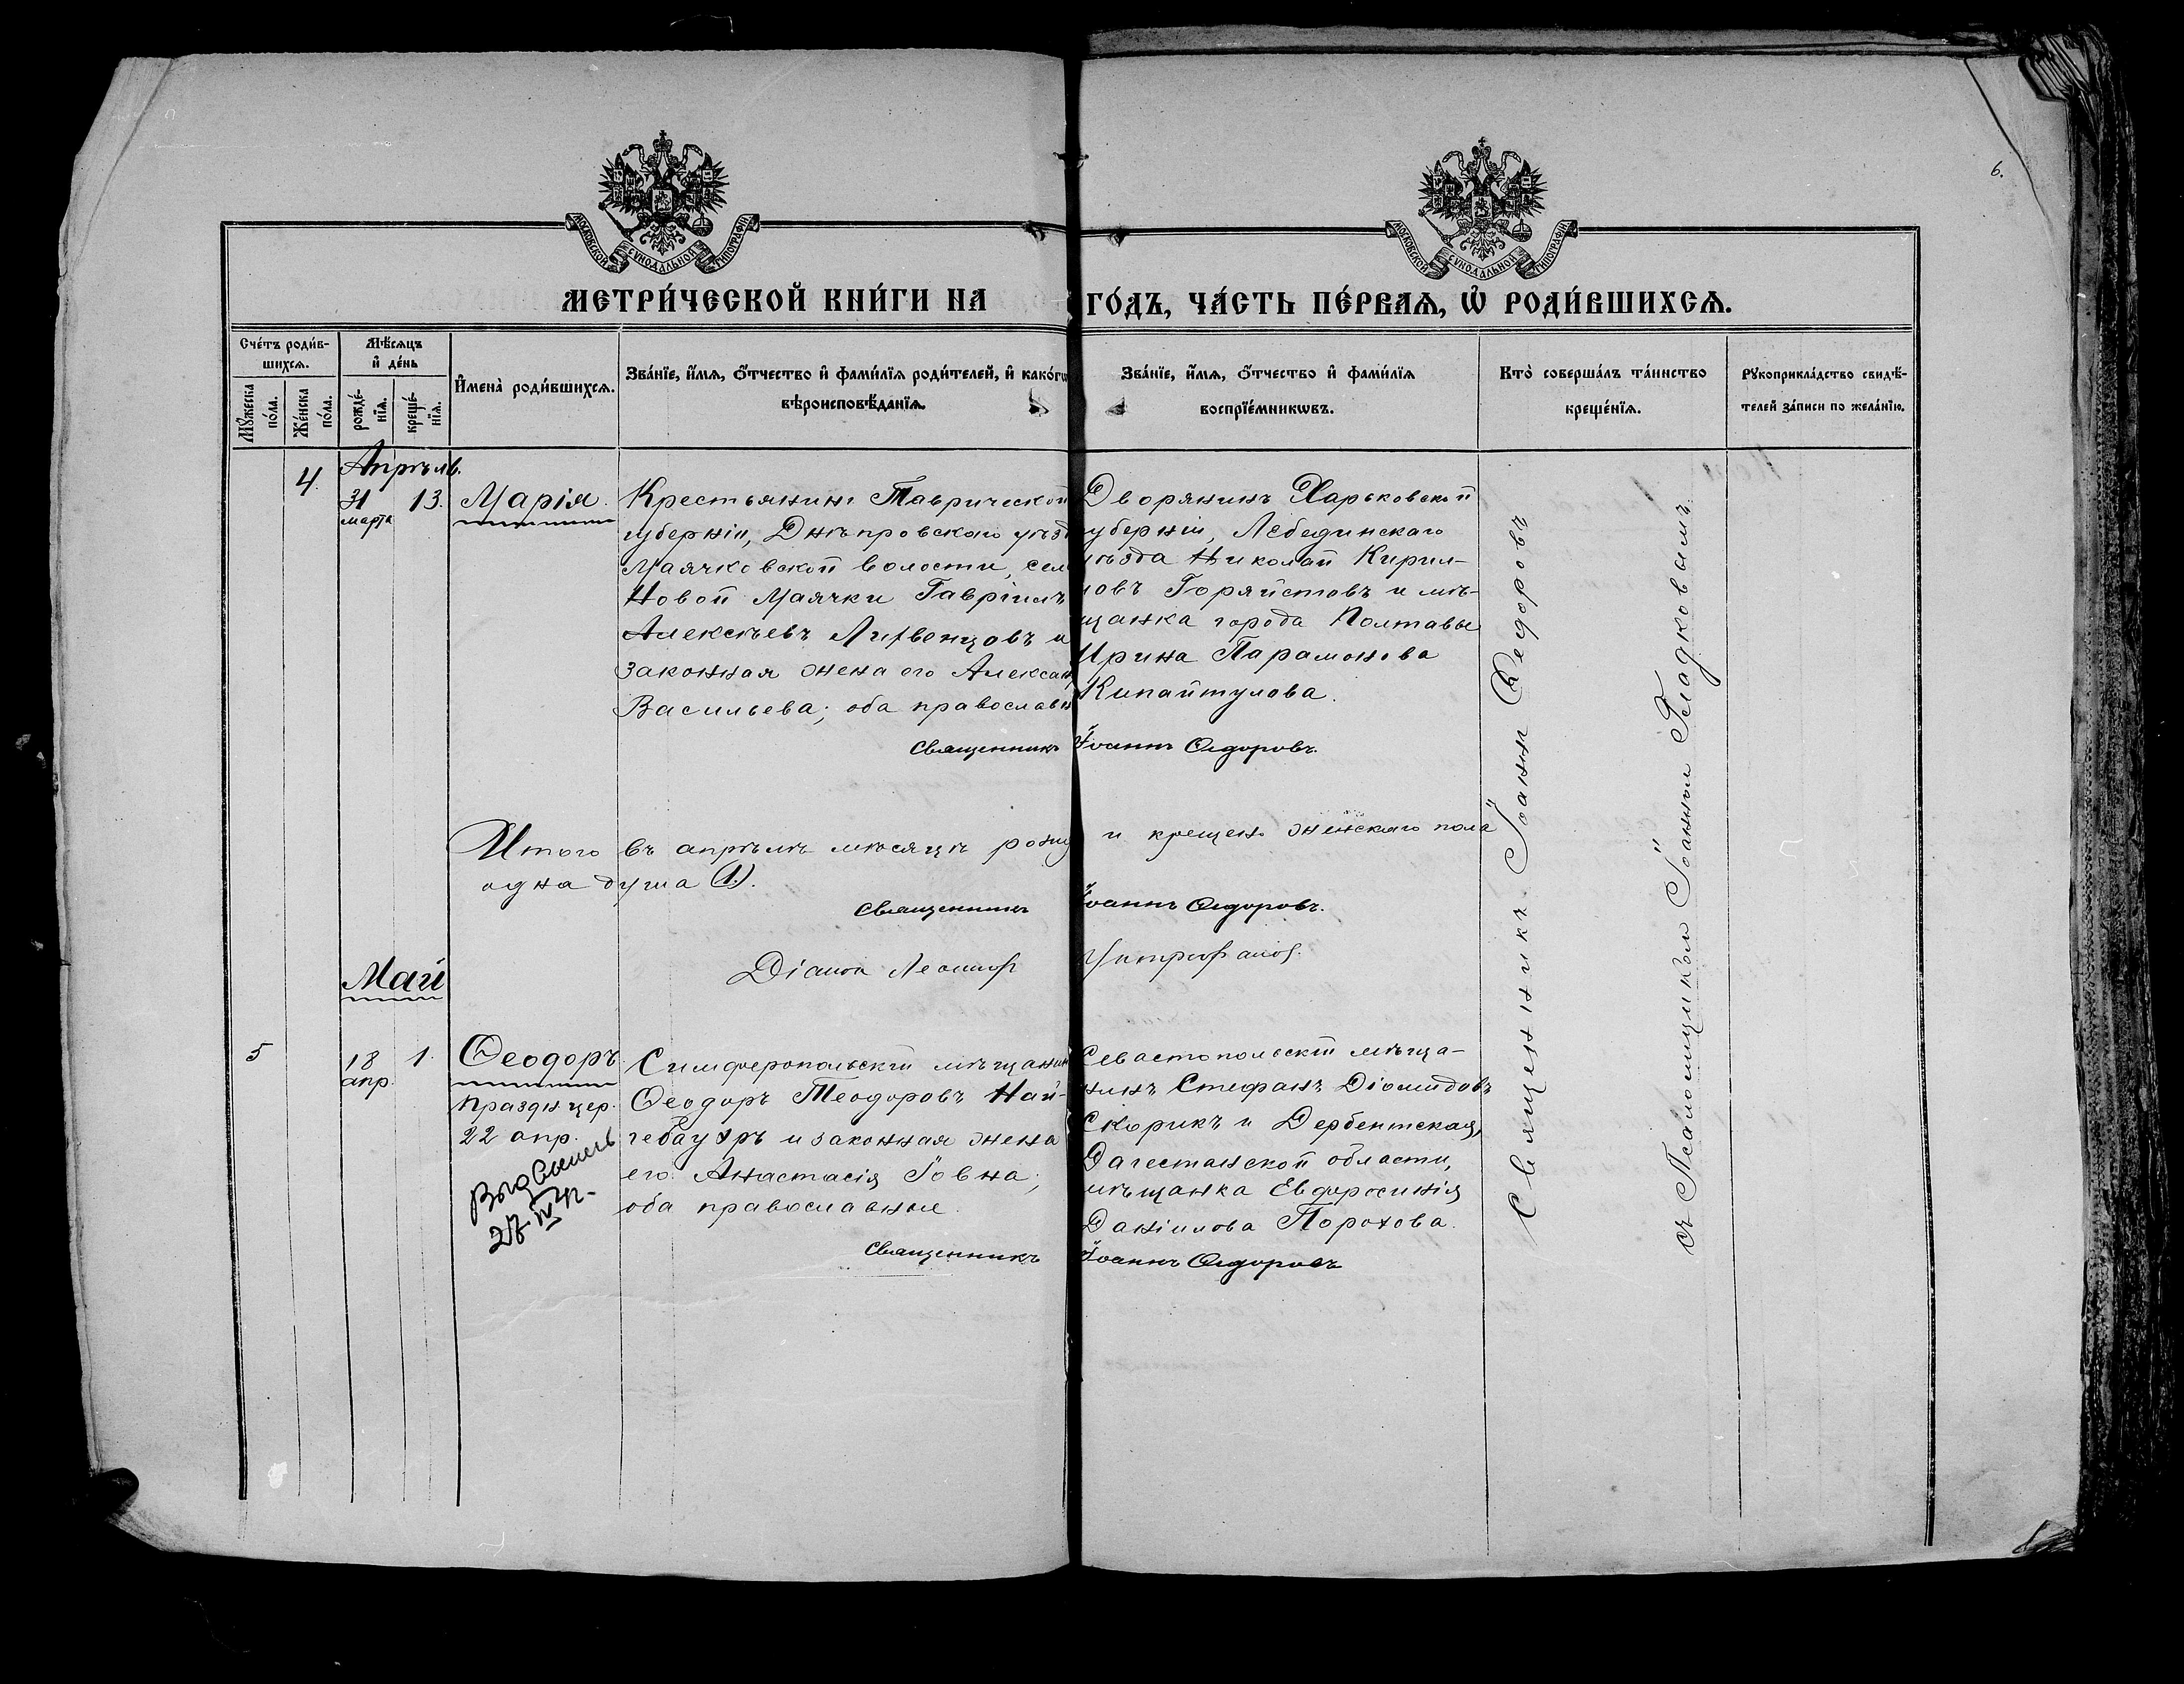 6.
МОСКОВСКОЙ СУНОДАЛЬНОЙ ТИПОГРАФІИ
МОСКОВСКОЙ СУНОДАЛЬНОЙ ТИПОГРАФІИ
МЕТРИ́ЧЕСКОЙ КНИ́ГИ НА ГО́ДЪ, ЧА́СТЬ ПЕ́РВАѦ, Ѽ РОДИ́ВШИХСѦ.
Сче́тъ роди́в-
шихсѧ.
Мꙋ́жеска по́ла.
Же́нска по́ла.
Мѣ́сѧцъ
и҆ де́нь
рожде́-
нїѧ.
креще́-
нїѧ.
И҆мена̀ роди́вшихсѧ.
Зва́нїе, и҆́мѧ, ѻ҆́тчество и҆ фами́лїѧ роди́телей, и҆ како́гѡ
вѣроисповѣ́данїѧ.
Зва́нїе, и҆́мѧ, ѻ҆́тчество и҆ фами́лїѧ
воспрїе́мникѡвъ.
Кто̀ соверша́лъ та́инство
креще́нїѧ.
Рꙋкоприкла́дство свидѣ́-
телей за́писи по жела́нїю.
Апрѣль.
4
31
марта
13.
Марія.
Крестьянинъ Таврической
губерніи, Днѣпровскаго уѣзд
Маячковской волости, сел
Новой Маячки Гавріилъ
Алексѣевъ Литвенцовъ и
законная жена его Алексан
Васильева; оба православн
Дворянинъ Харьковской
губерніи, Лебединскаго
уѣзда Николай Кирил-
ловъ Горяистовъ и мѣ-
щанка города Полтавы
Ирина Парамонова
Кипайтулова.
Священникъ Іоаннъ Ѳедоровъ.
Итого въ апрѣлѣ мѣсяцѣ рожд и крещено женскаго пола
одна душа (1.).
Священникъ Іоаннъ Ѳедоровъ.
Май
Діакон Леонтій Митрофанов.
5
18
апр.
1.
Ѳеодоръ
Праздн. цер.
22 апр.
Симферопольскій мѣщанин
Ѳеодоръ Теодоровъ Най-
гебауэръ и законная жена
его Анастасія Іовна;
оба православные.
Севастопольскій мѣща-
нинъ Стефанъ Діомидовъ
Скорикъ и Дербентская,
Дагестанской области,
мѣщанка Евфросинія
Даніилова Порохова.
Священникъ Іоаннъ Ѳедоровъ
Священникъ Іоанн Ѳедоровъ
съ Псаломщиком Іоанном Гладковымъ.